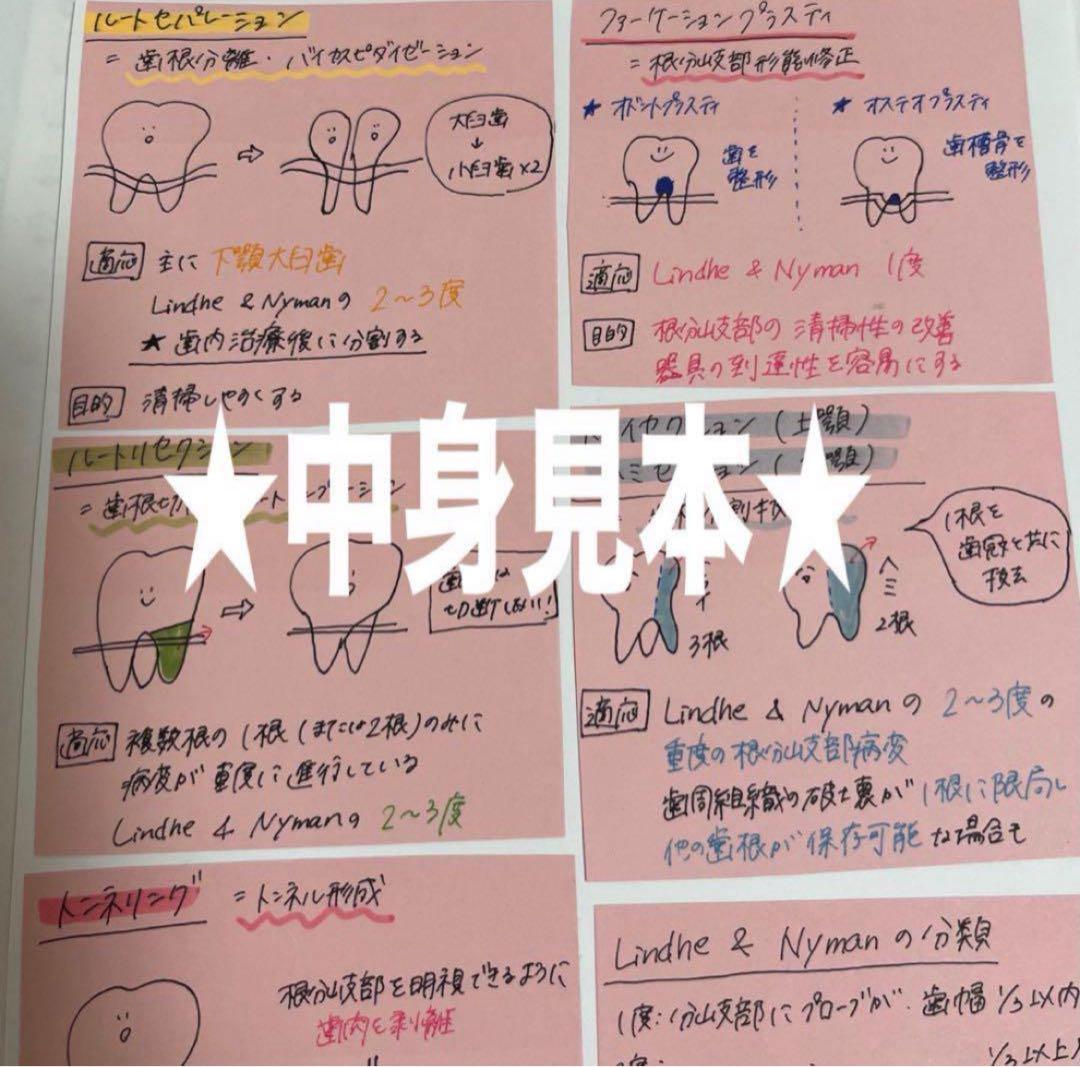 ルートセパレーション
= 歯根分離・バイカスピダイゼーション
大臼歯
↓
小臼歯×2
適応 主に 下顎大臼歯
Lindhe & Nymanの 2〜3度
★ 歯内治療後に分割する
目的 清掃しやすくする
ファーケーションプラスティ
= 根分岐部形態修正
★ オドントプラスティ
歯を
整形
★ オステオプラスティ
歯槽骨を
整形
適応 Lindhe & Nyman 1度
目的 根分岐部の清掃性の改善
器具の到達性を容易にする
★中身見本★
ルートリセクション
= 歯根切
切断しない!
適応 複数根の1根(または2根)のみに
病変が重度に進行している
Lindhe & Nymanの 2〜3度
イセクション(上顎)
ミセ
顎)
1根を
歯冠と共に
抜去
3根
ヘミ
2根
適応 Lindhe & Nymanの 2〜3度の
重度の根分岐部病変
歯周組織の破壊が1根に限局し
他の歯根が保存可能な場合も
トンネリング = トンネル形成
根分岐部を明視できるように
歯肉を剥離
Lindhe & Nymanの分類
1度:分岐部にプローブが歯幅1/3以内
1/3以上